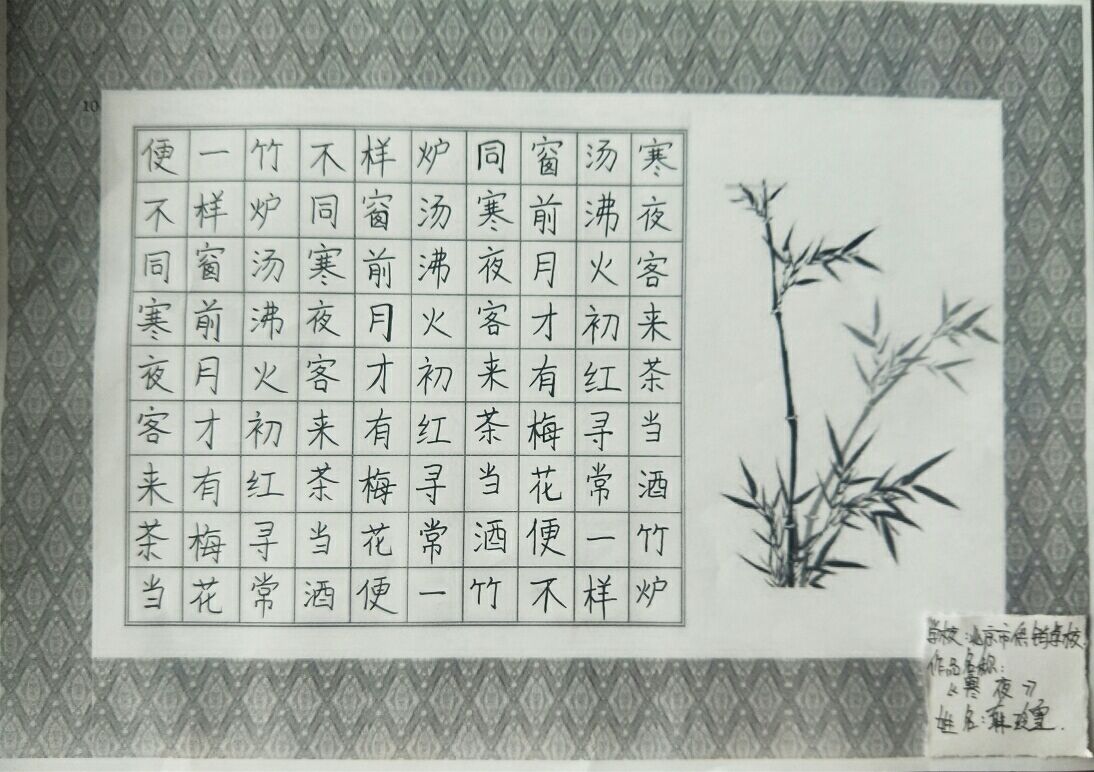 10
寒夜客来茶当酒竹炉
汤沸火初红寻常一样
窗前月才有梅花便不
同寒夜客来茶当酒竹
炉汤沸火初红寻常一
样窗前月才有梅花便
不同寒夜客来茶当酒
竹炉汤沸火初红寻常
一样窗前月才有梅花
便不同寒夜客来茶当
学校:北京市供销学校
作品名称:
《寒夜》
姓名: